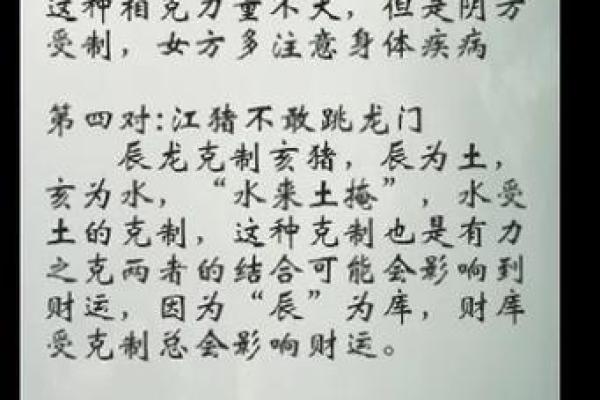 这种相克力量不大，但是阴方
受制，女方多注意身体疾病
第四对:江猪不敢跳龙门
辰龙克制亥猪，辰为土，
亥为水，“水来土掩”，水受
土的克制，这种克制也是有力
之克两者的结合可能会影响到
财运，因为“辰”为库，财库
受克制总会影响财运。